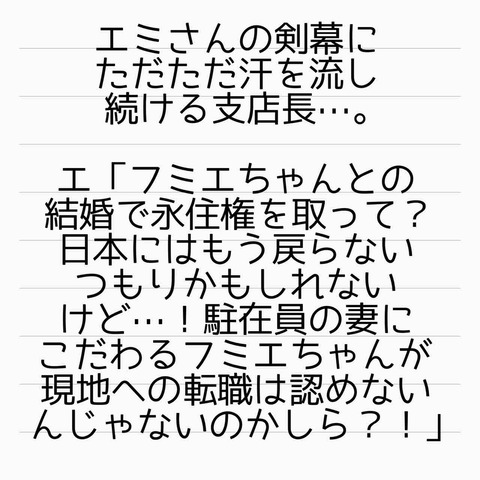 エミさんの剣幕に
ただただ汗を流し
続ける支店長…。
エ「フミエちゃんとの
結婚で永住権を取って？
日本にはもう戻らない
つもりかもしれない
けど…！駐在員の妻に
こだわるフミエちゃんが
現地への転職は認めない
んじゃないのかしら？！」